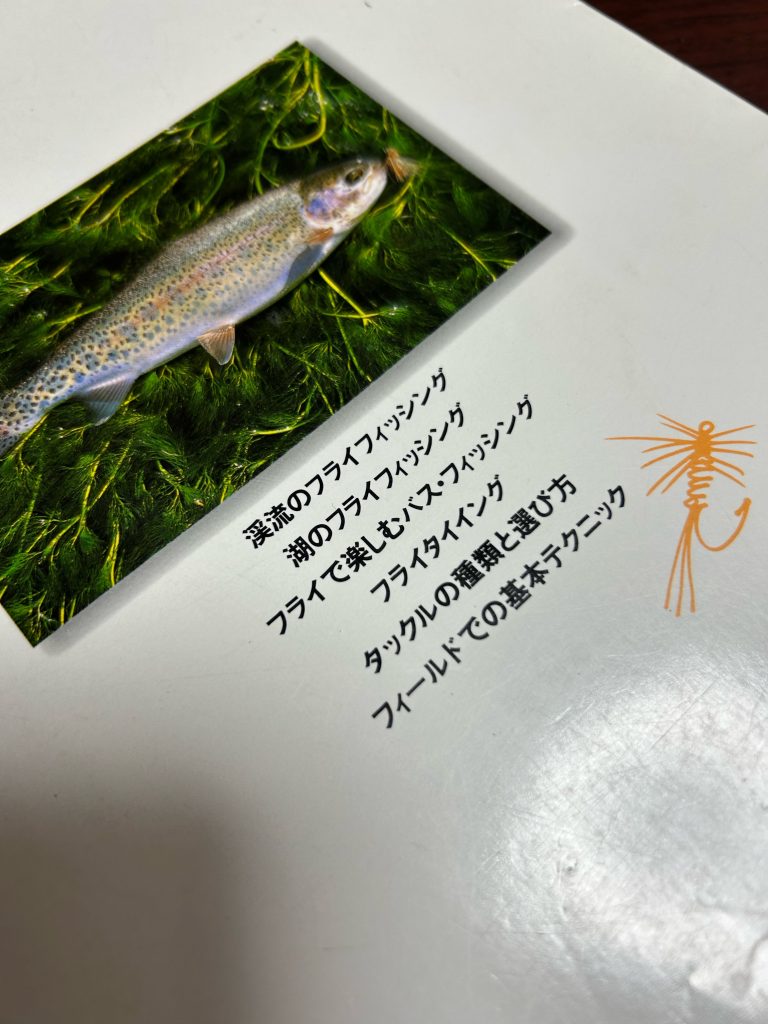 渓流のフライフィッシング
湖のフライフィッシング
フライで楽しむバス・フィッシング
フライタイイング
タックルの種類と選び方
フィールドでの基本テクニック